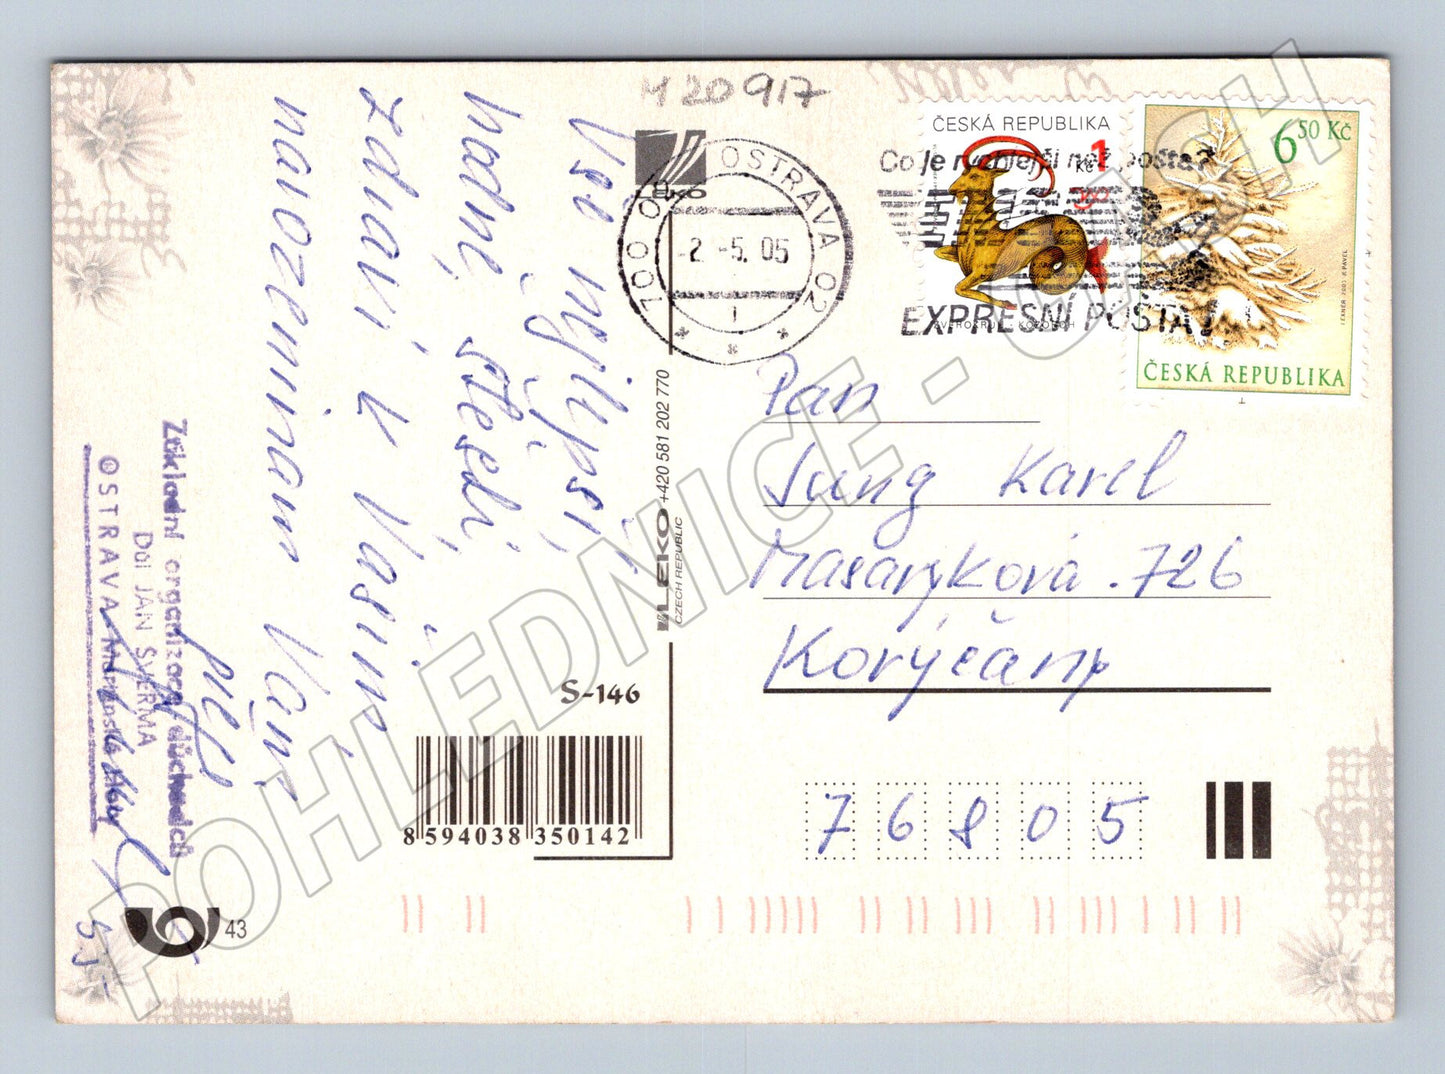 M 20917
Vše nejlepší,
hodně štěstí,
zdraví k Vašim
narozeninám Vám
přeje
Základní organizace důchodců
Důl JAN ŠVERMA
OSTRAVA - Mariánské Hory
LEKO
LEKO +420 581 202 770
CZECH REPUBLIC
S-146
8 594038 350142
43
OSTRAVA 02
700 02
-2.-5. 05
1
Co je rychlejší než pošta?
EXPRESNÍ POŠTA!
ČESKÁ REPUBLIKA
1 Kč
ZVĚROKRUH - KOZOROH
6 50 Kč
ČESKÁ REPUBLIKA
Pan
Jung Karel
Masarykova 726
Koryčany
76805
POHLEDNICE - CASH